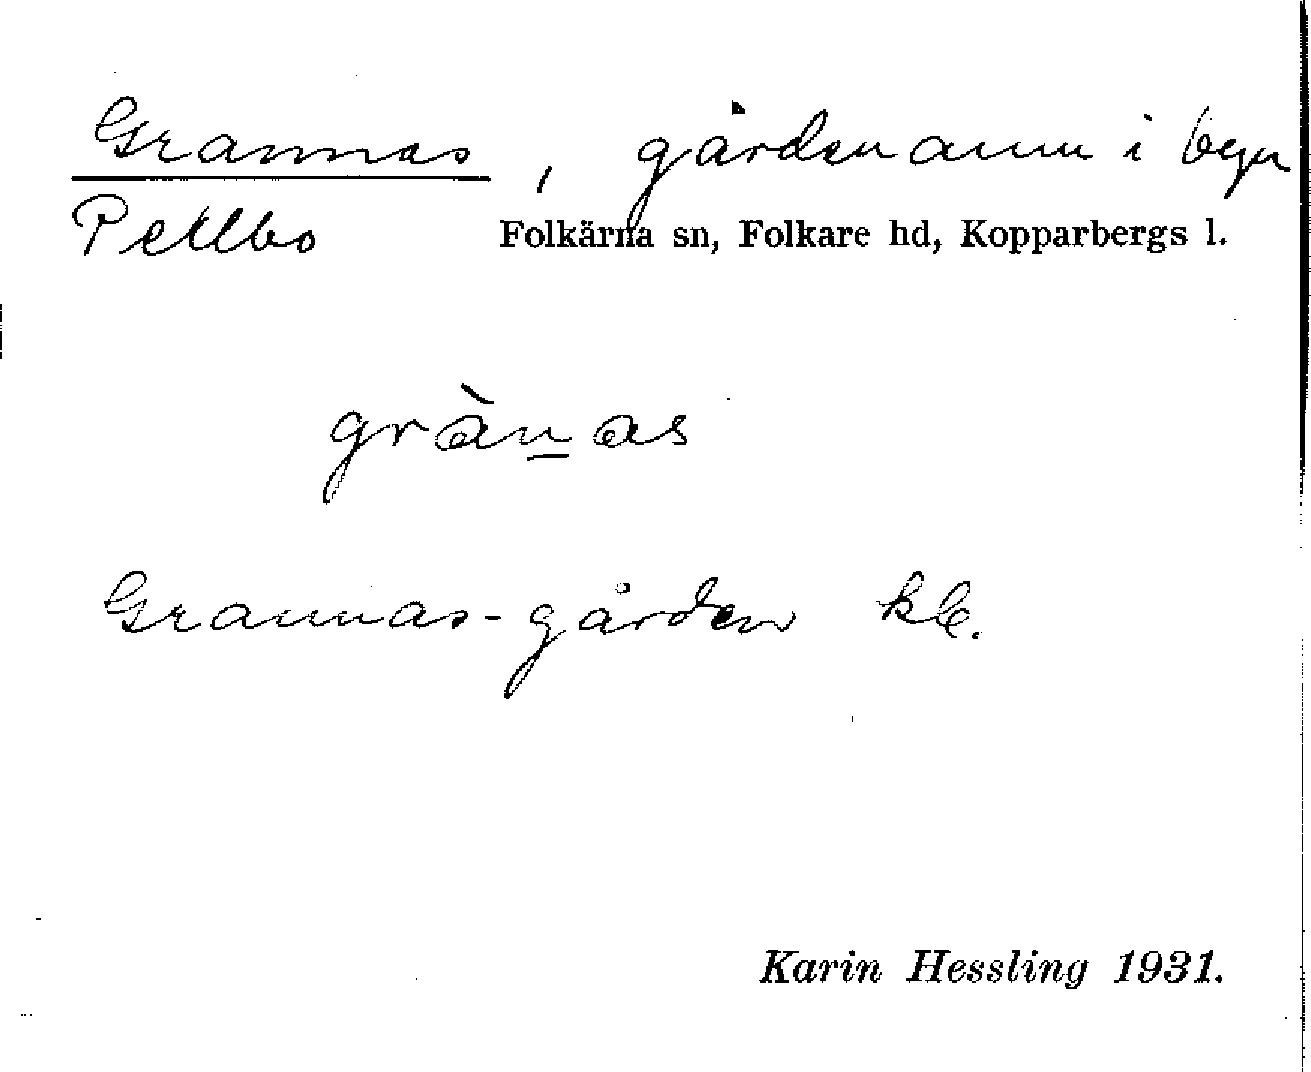 Grannas, gårdsnamn i byn
Pettbo Folkärna sn, Folkare hd, Kopparbergs l.
grànas
Grannas-gården
Karin Hessling 1931.